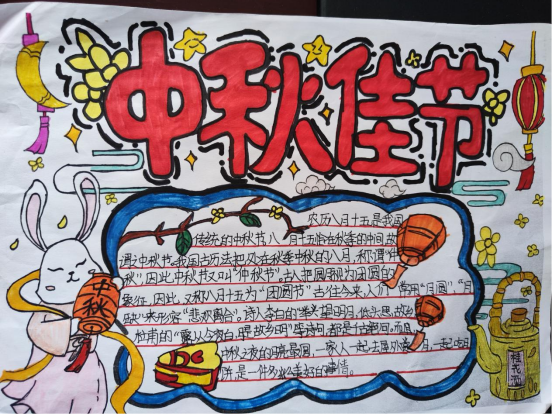 中秋佳节
农历八月十五是我国
传统的中秋节,八月十五恰在秋季的中间,故
谓之中秋节。我国古历法把处在秋季中秋的八月,称谓"仲
秋",因此中秋节又叫"仲秋节"。古人把圆月视为团圆的
象征,因此,又称八月十五为"团圆节"。古往今来,人们常用"月圆"、"月
缺"来形容"悲欢离合"。诗人李白的"举头望明月,低头思故
杜甫的"露从今夜白,月是故乡明"等诗句,都是
中秋之夜的月亮最圆,一家人一起
是一件多么美好的事情。
中秋
桂花酒